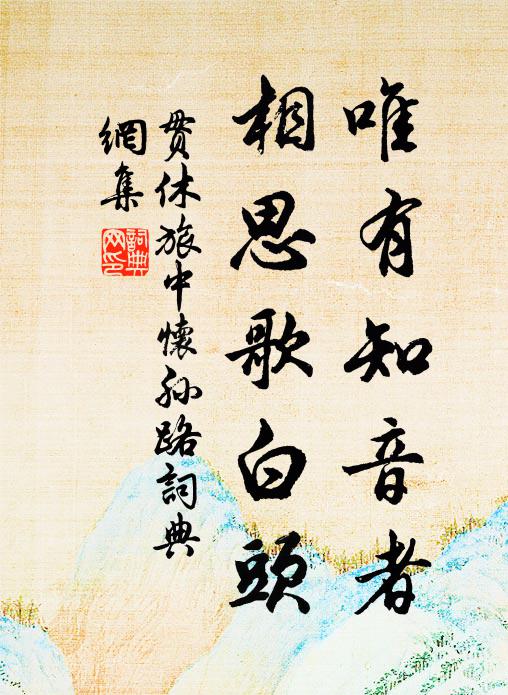 唯有知音者
相思歌白頭
貫休旅中懷孙路詞典
網集
詞典
网印